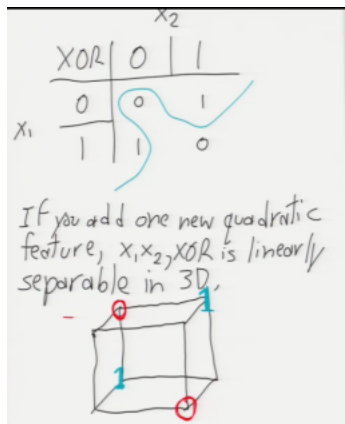 X2
XOR 0 1
0 0 1
X1
1 1 0
If you add one new quadratic
feature, X1X2, XOR is linearly
separable in 3D.
0 1
1
0